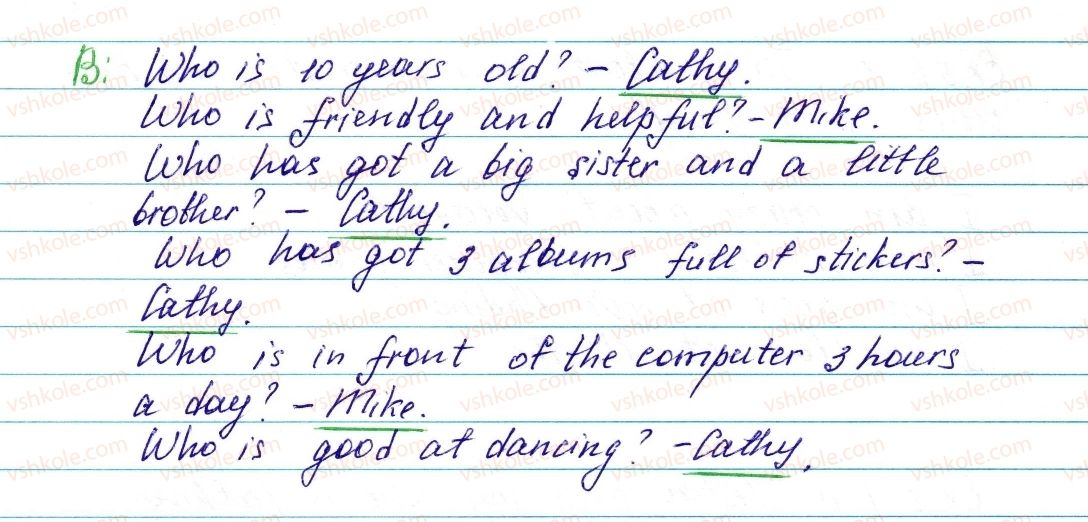 B: Who is 10 years old? – Cathy.
Who is friendly and helpful? – Mike.
Who has got a big sister and a little
brother? – Cathy.
Who has got 3 albums full of stickers? –
Cathy.
Who is in front of the computer 3 hours
a day? – Mike.
Who is good at dancing? – Cathy.